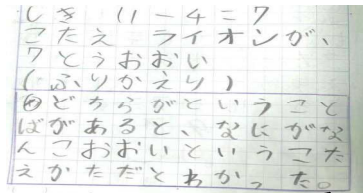 しき 11-4=7
こたえ ライオンが、
7とうおおい
(ふりかえり)
めどちらがということ
ばがあると、なにがな
んこおおいというこた
えかただとわかった。